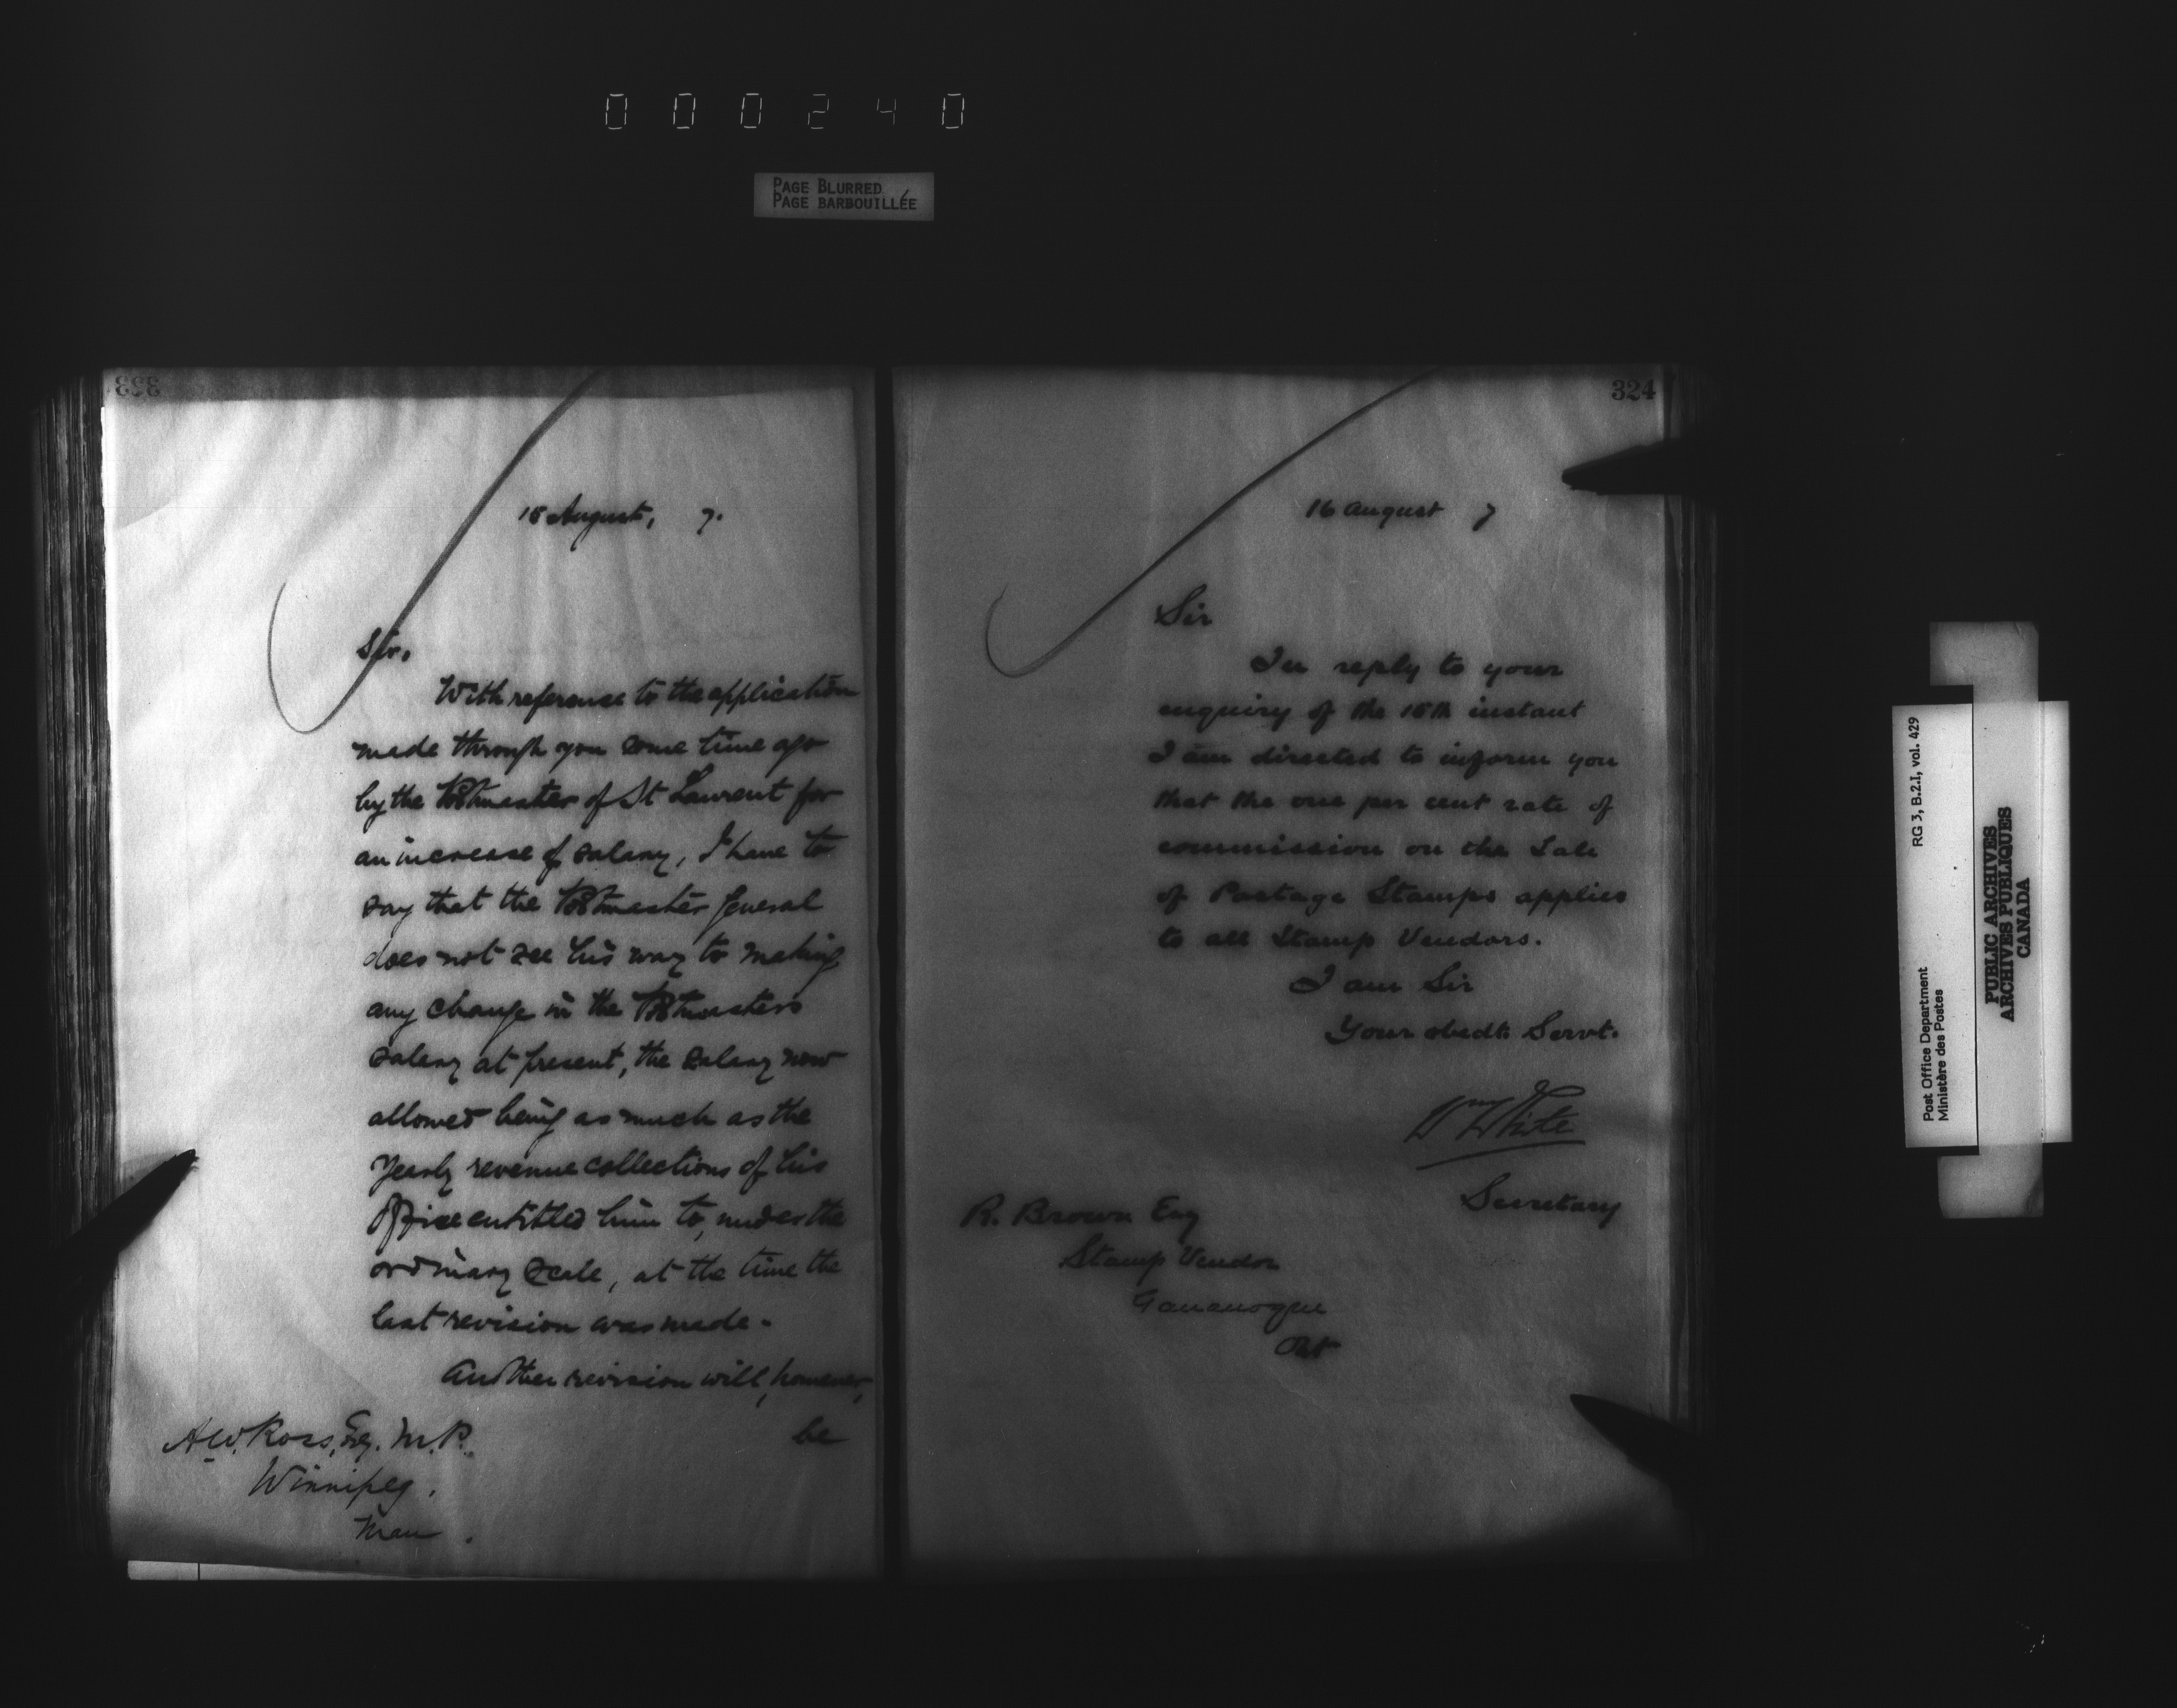 000240
PAGE BLURRED
PAGE BARBOUILLÉE
323
15 August, 7.
Sir,
With reference to the application
made through you some time ago
by the Postmaster of St Laurent for
an increase of salary, I have to
say that the Postmaster General
does not see his way to making
any change in the Postmaster's
salary at present, the salary now
allowed being as much as the
yearly revenue collections of his
Office entitled him to, under the
ordinary scale, at the time the
last revision was made.
Another revision will, however,
be
A.W. Ross, Esq. M.P.
Winnipeg.
Man.
324
16 August 7
Sir
In reply to your
enquiry of the 15th instant
I am directed to inform you
that the one per cent rate of
commission on the Sale
of Postage Stamps applies
to all Stamp Vendors.
I am Sir
Your obedt. Servt.
Wm White
Secretary
R. Brown Esq
Stamp Vendor
Gananoque
Ont
RG 3, B.2.I, vol. 429
Post Office Department
Ministère des Postes
PUBLIC ARCHIVES
ARCHIVES PUBLIQUES
CANADA